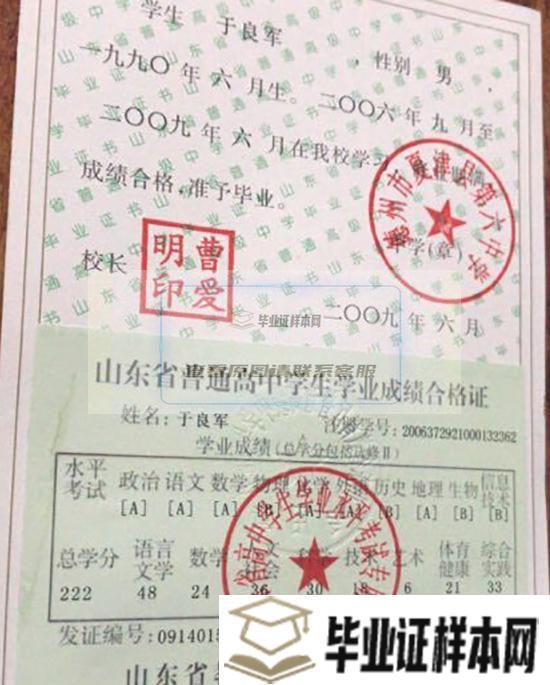 学生 于良军 ，性别 男 ，
一九九〇 年 六 月生。二〇〇六 年 九 月至
二〇〇九 年 六 月在我校学习
成绩合格,准予毕业。
德州市夏津县第六中学
校长
明曹
印爱
中学(章)
二〇〇九 年 六 月
毕业证样本网
查看原图请联系客服
山东省普通高中学生学业成绩合格证
姓名:于良军 注册学号:2006372921000132362
学业成绩(总学分包括选修Ⅱ)
水平考试 政治 语文 数学 物理 化学 外语 历史 地理 生物 信息技术
[A] [A] [A] [B] [A] [B] [A] [B] [B]
总学分 语言文学 数学 技术 艺术 体育健康 综合实践
222 48 24 36 30 18 6 21 33
发证编号:0914015
山东省
毕业证样本网